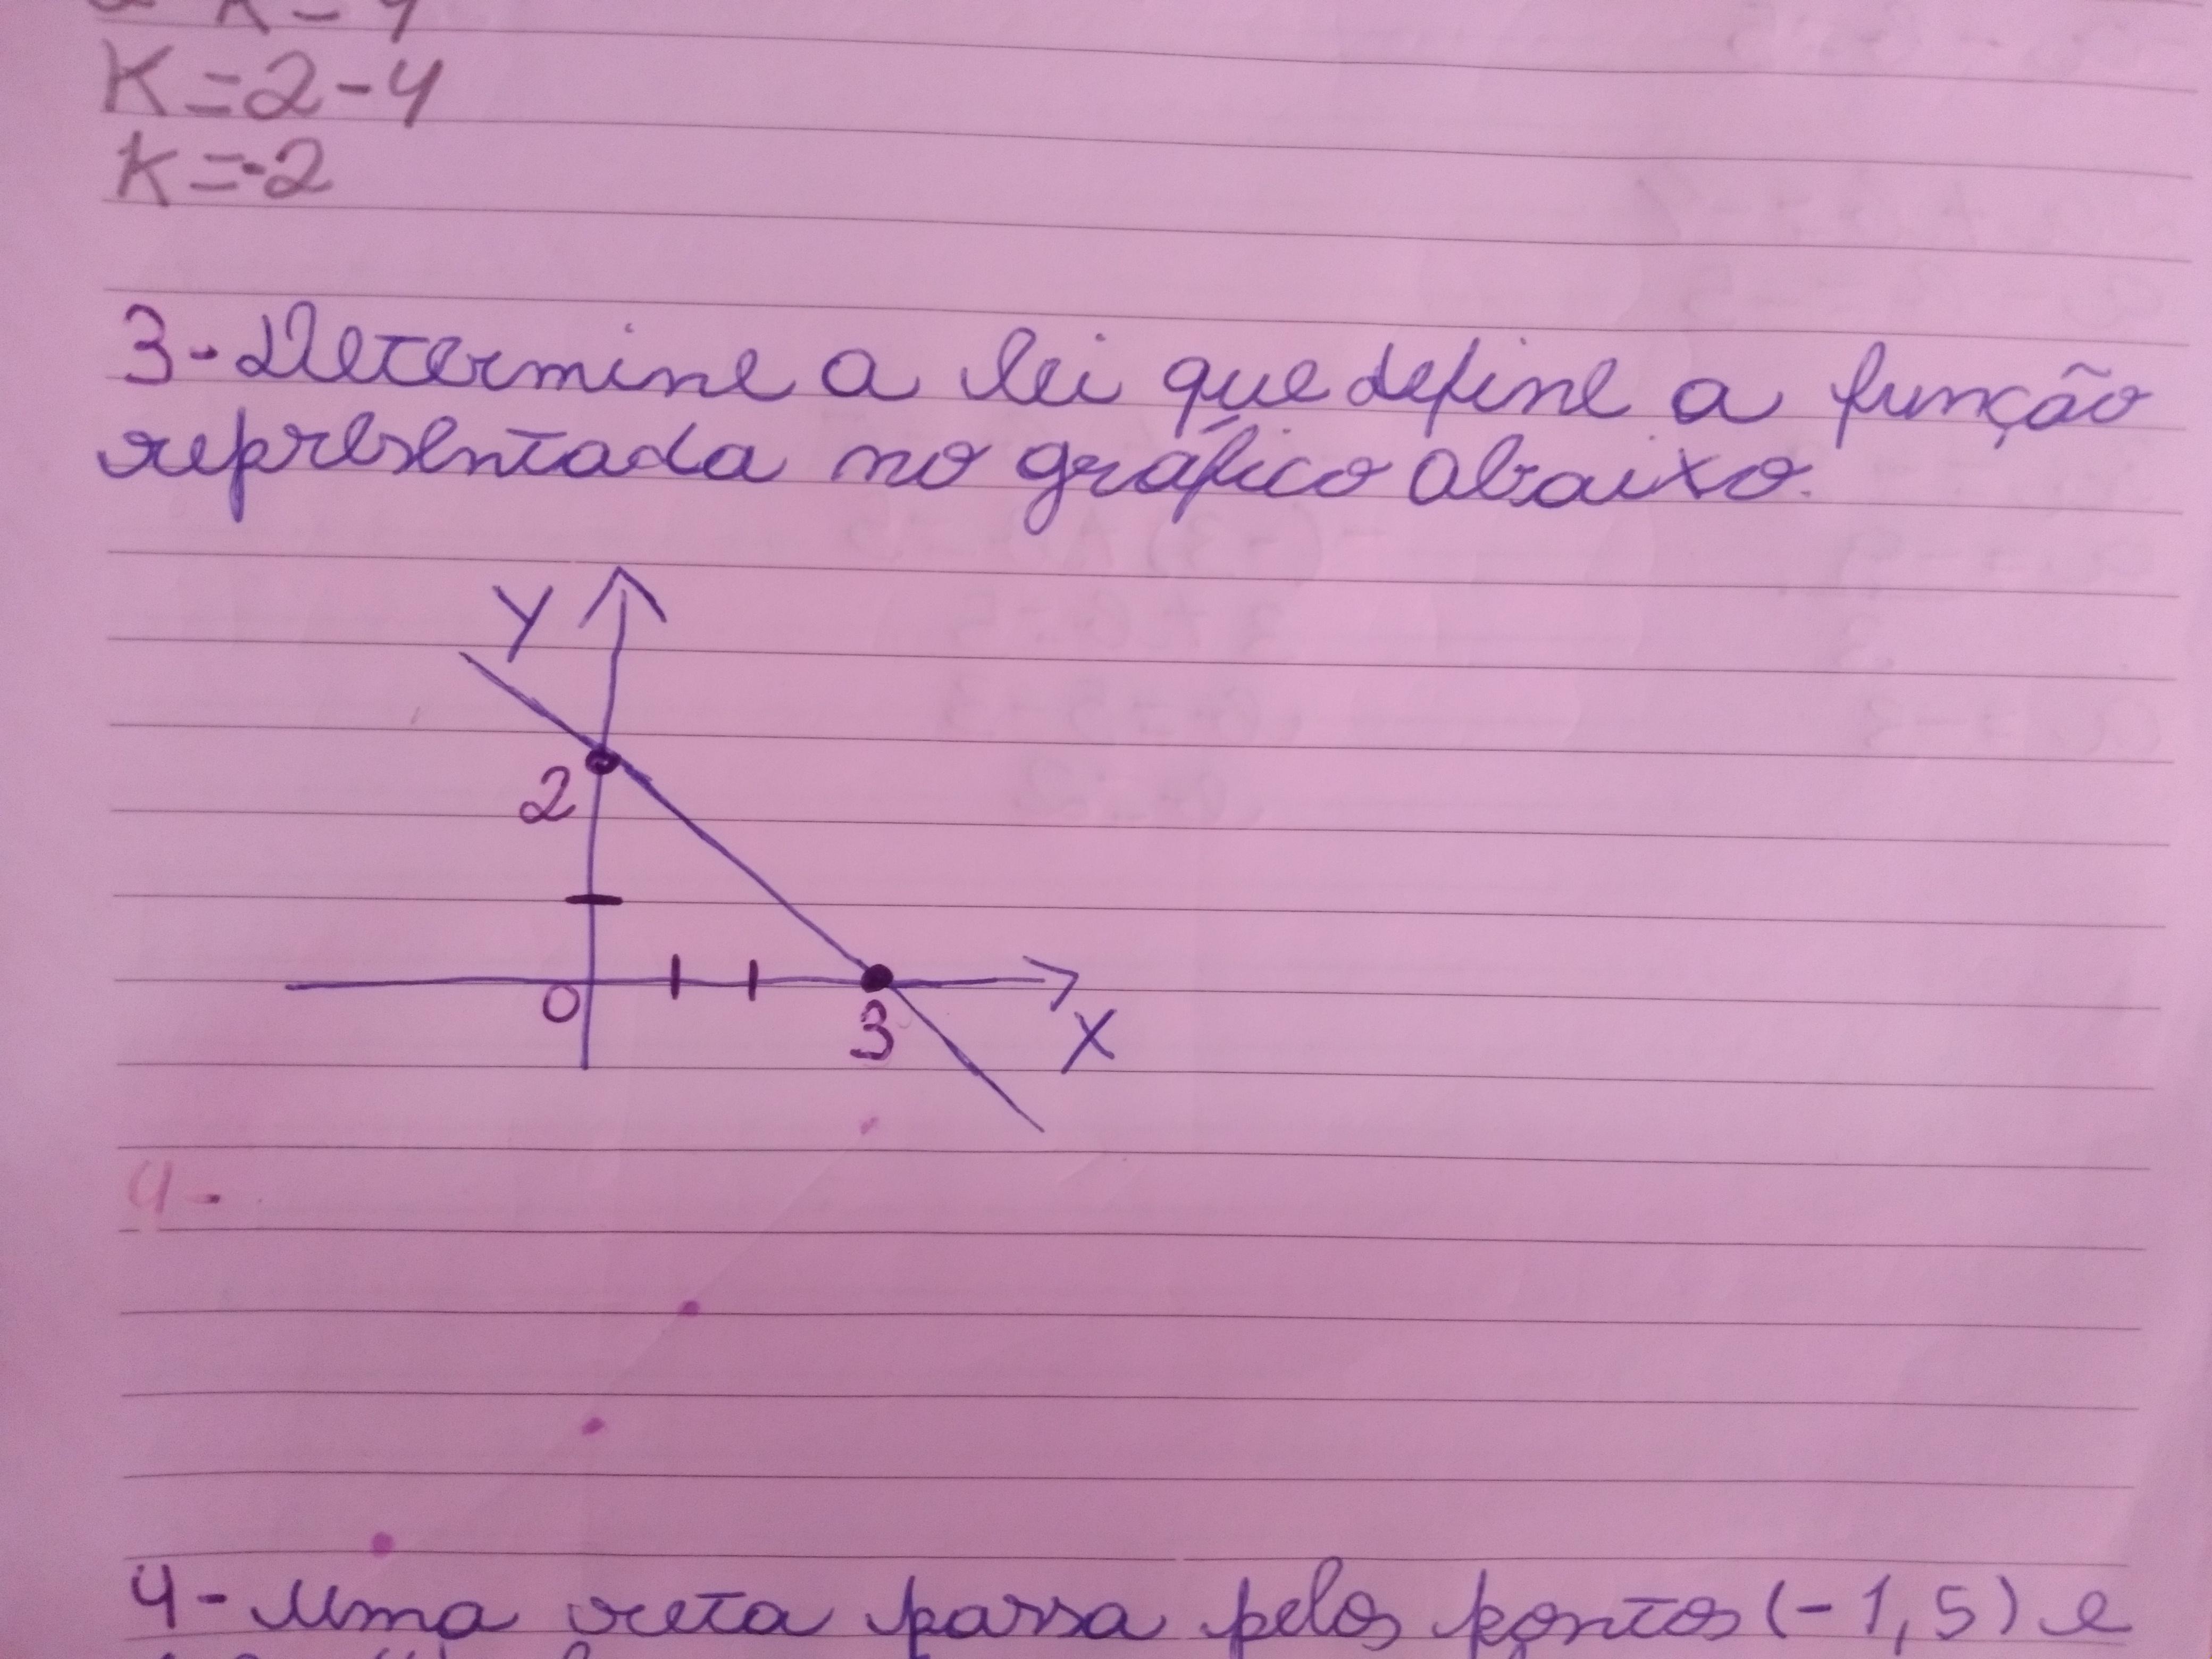 K=2-4
K=-2
3-Determine a lei que define a função
representada no gráfico abaixo.
Y
2
0
3
X
4-
4-Uma reta passa pelos pontos (-1,5) e